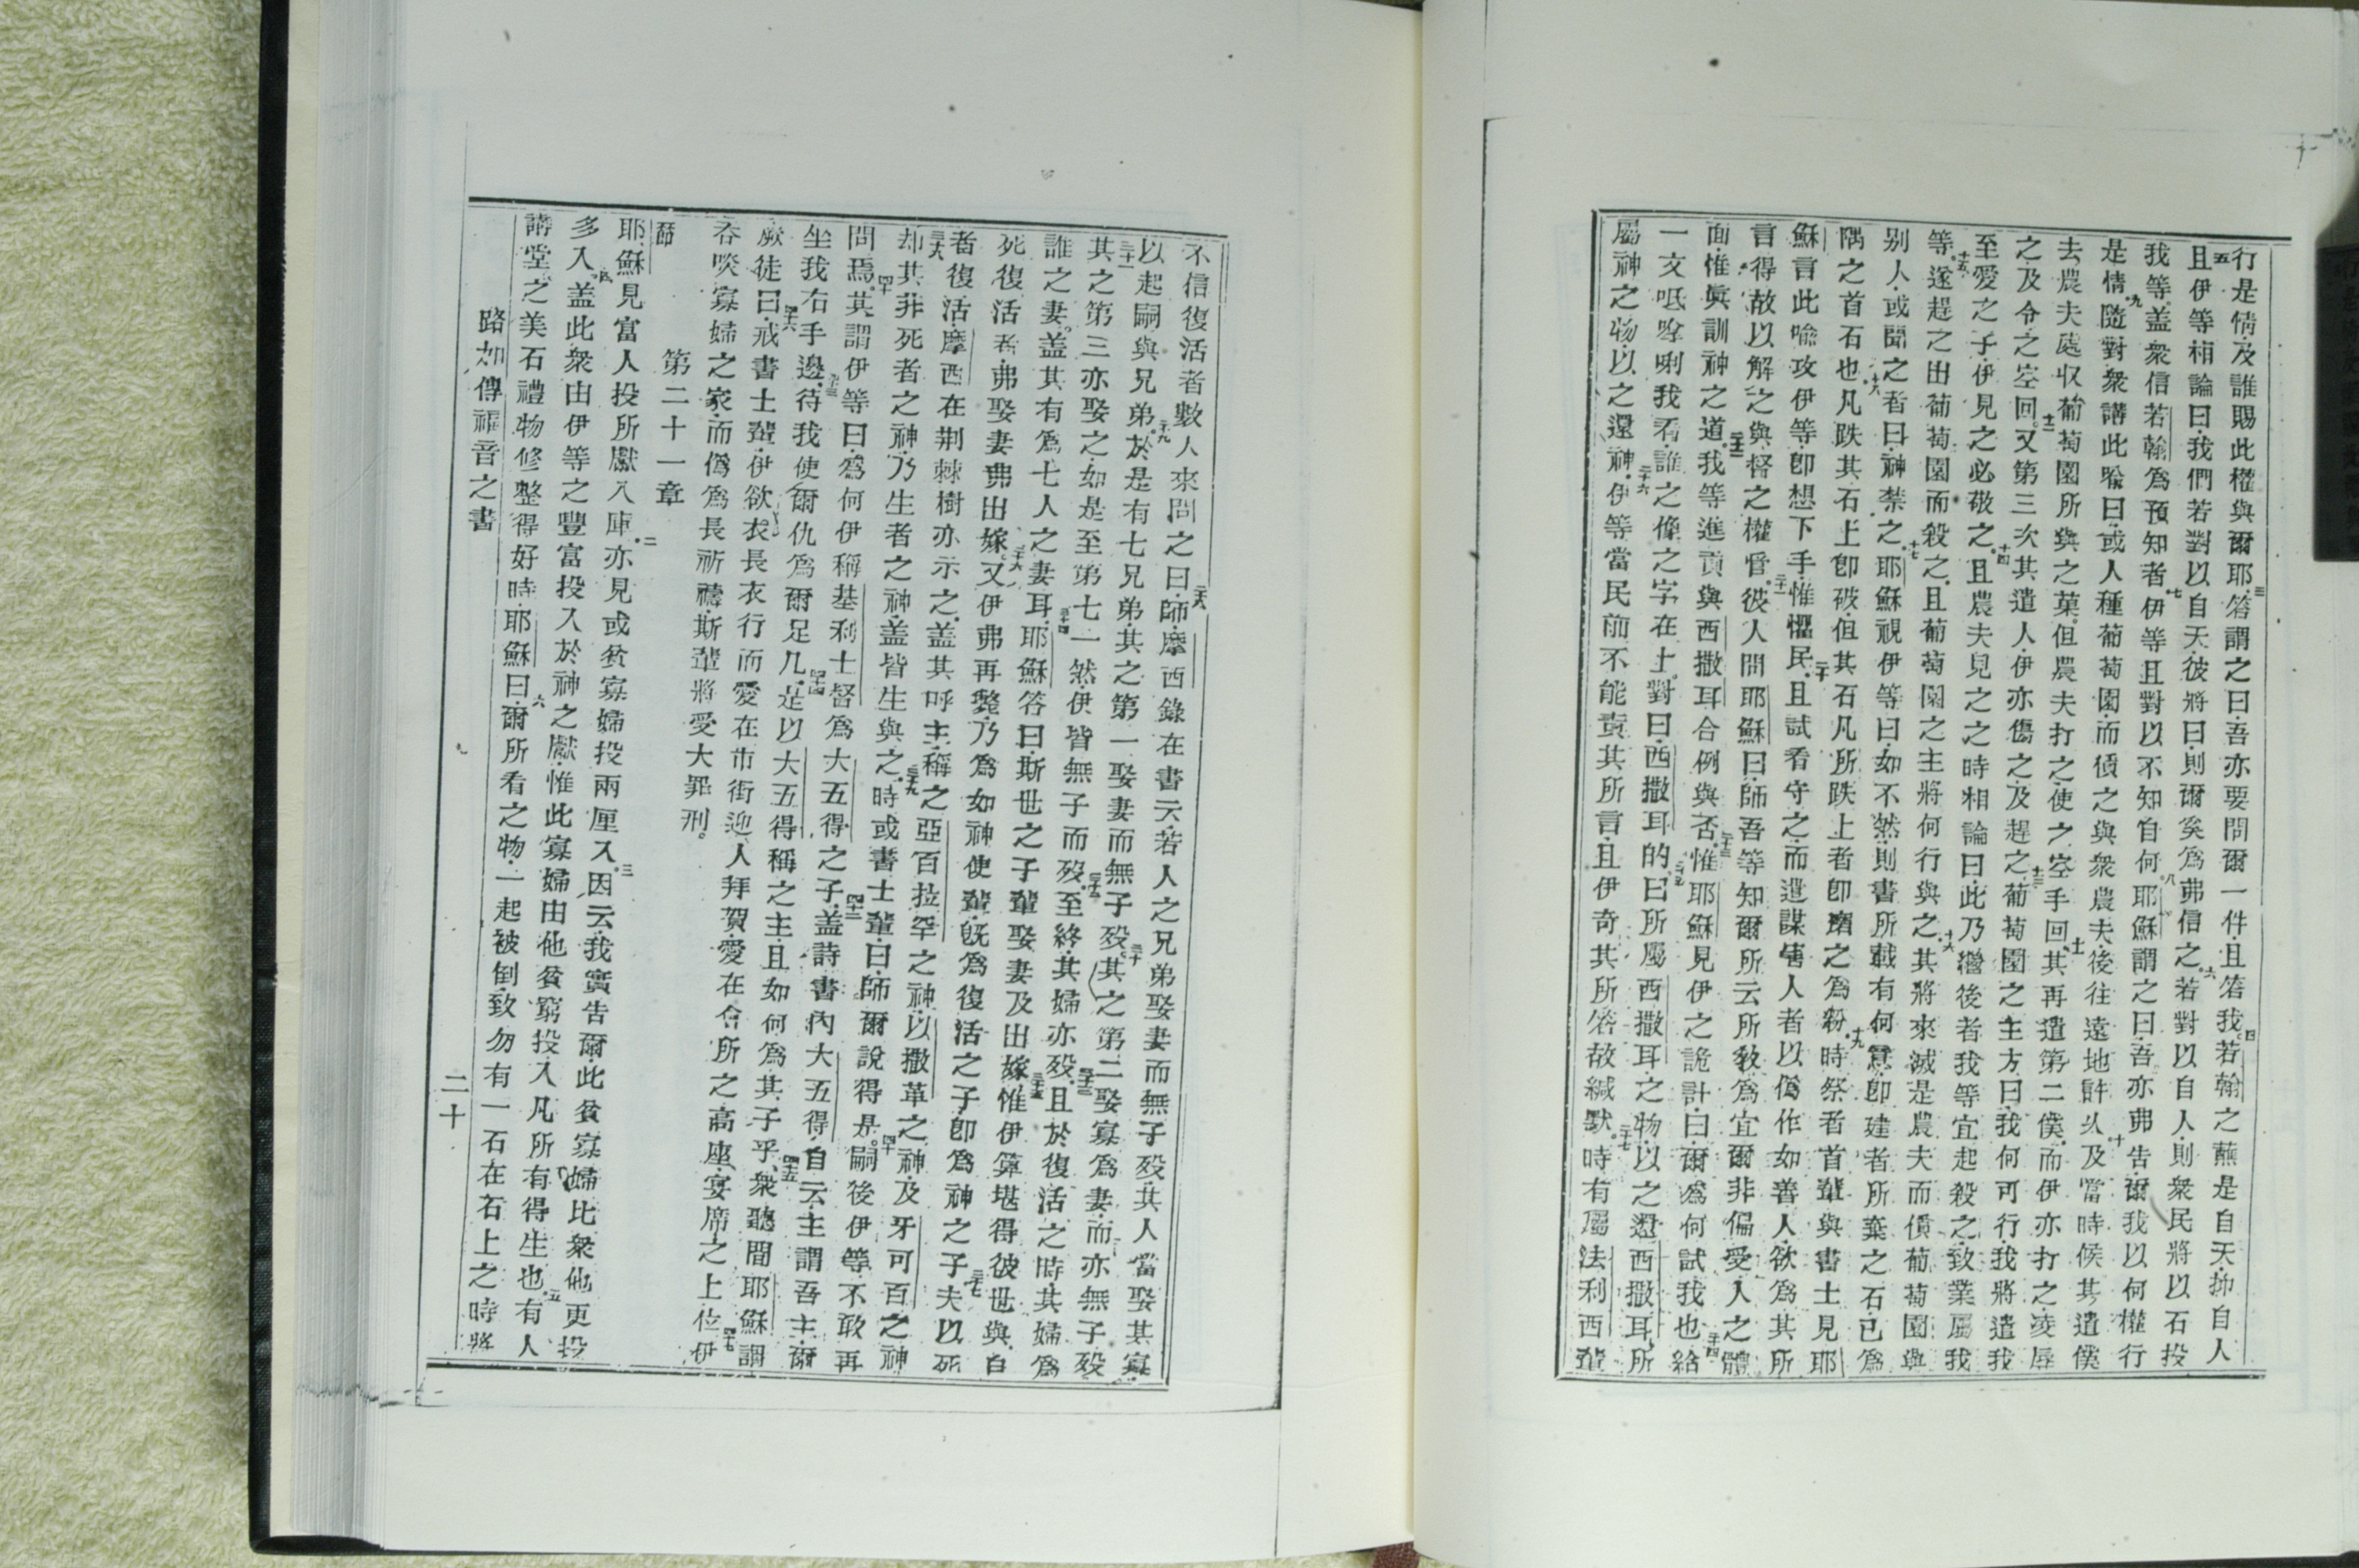 行是情及誰賜此權與爾耶三答謂之曰吾亦要問爾一件且答我四若翰之蘸是自天抑自人
五且伊等相論曰我們若對以自天彼將曰則爾奚爲弗信之六若對以自人則衆民將以石投
我等蓋衆信若翰爲預知者七伊等且對以不知自何八耶穌謂之曰吾亦弗告爾我以何權行
是情九隨對衆講此喩曰或人種葡萄園而債之與衆農夫後往遠地許久十及當時候其遣僕
去農夫處収葡萄園所與之菓但農夫打之使之空手回十一其再遣第二僕而伊亦打之凌辱
之及令之空回十二又第三次其遣人伊亦傷之及趕之十三葡萄園之主方曰我何可行我將遣我
至愛之子伊見之必敬之十四且農夫見之之時相論曰此乃繼後者我等宜起殺之致業屬我
等十五遂趕之出葡萄園而殺之且葡萄園之主將何行與之十六其將來滅是農夫而債葡萄園與
别人或聞之者曰神禁之十七耶穌視伊等曰如不然則書所載有何意卽建者所棄之石已爲
隅之首石也十八凡跌其石上卽破但其石凡所跌上者卽磨之爲粉十九時祭者首輩與書士見耶
穌言此喩攻伊等卽想下手惟懼民二十且試看守之而遣謀害人者以僞作如善人欲爲其所
言得故以解之與督之權管二十一彼人問耶穌曰師吾等知爾所云所敎爲宜爾非偏愛人之體
面惟眞訓神之道二十二我等進貢與西撒耳合例與否二十三惟耶穌見伊之詭計曰爾爲何試我也二十四給
一文呧𠸄唎我看誰之像之字在上對曰西撒耳的二十五曰所屬西撒耳之物以之還西撒耳所
屬神之物以之還神二十六伊等當民前不能責其所言且伊奇其所答故緘默二十七時有屬法利西輩
不信復活者數人來問之曰二十八師摩西錄在書云若人之兄弟娶妻而無子歿其人當娶其寡
以起嗣與兄弟二十九於是有七兄弟其之第一娶妻而無子歿三十其之第二娶寡爲妻而亦無子歿
三十一其之第三亦娶之如是至第七一然伊皆無子而歿三十二至終其婦亦歿三十三且於復活之時其婦爲
誰之妻蓋其有爲七人之妻耳三十四耶穌答曰斯世之子輩娶妻及出嫁三十五惟伊算堪得彼世與自
死復活者弗娶妻弗出嫁三十六又伊弗再斃乃爲如神使輩旣爲復活之子卽爲神之子三十七夫以死
者復活摩西在荆棘樹亦示之蓋其呼主稱之亞百拉罕之神以撒革之神及牙可百之神
三十八却其非死者之神乃生者之神蓋皆生與之三十九時或書士輩曰師爾說得是四十嗣後伊等不敢再
問焉四十一其謂伊等曰爲何伊稱基利士督爲大五得之子四十二蓋詩書內大五得自云主謂吾主爾
坐我右手邊四十三待我使爾仇爲爾足几四十四是以大五得稱之主且如何爲其子乎四十五衆聽間耶穌謂
厥徒曰四十六戒書士輩伊欲衣長衣行而愛在市街迎人拜賀愛在會所之高座宴席之上位四十七伊
吞啖寡婦之家而僞爲長祈禱斯輩將受大罪刑
第二十一章
一節
耶穌見富人投所獻入庫二亦見或貧寡婦投兩厘入三因云我實告爾此貧寡婦比衆他更投
多入四蓋此衆由伊等之豐富投入於神之獻惟此寡婦由他貧窮投入凡所有得生也五有人
講堂之美石禮物修整得好時耶穌曰六爾所看之物一起被倒致勿有一石在石上之時將
路加傳福音之書
二十